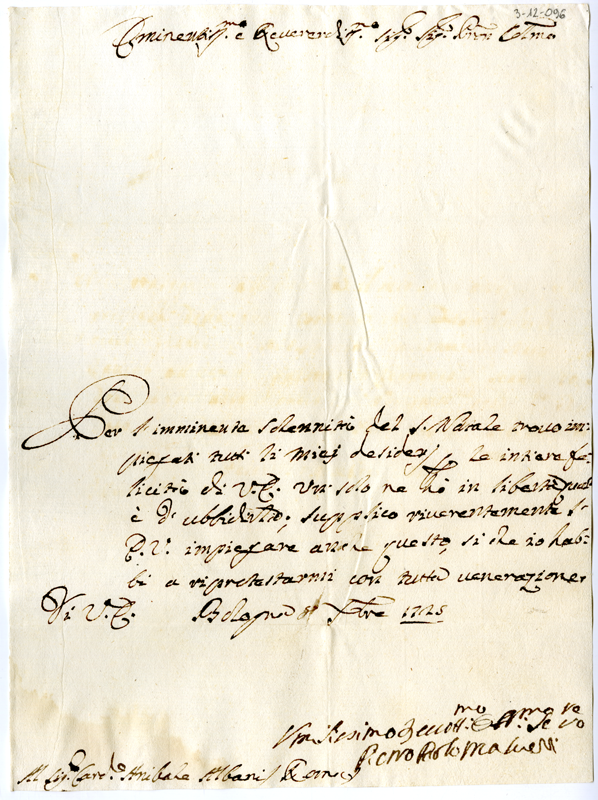 3-12-096
Eminentiss.mo e Reverendiss.mo Sig.r Sig.r Pron Colmo
Per l'imminente solennità del S. Natale trovo im-
piegati tutti li miei desiderj p le intiere fe-
licità di V.E. Un solo ne hò in libertà, quale
è d'ubbidirla; supplico riverentemente
E.V. impiegare anche questo, si che io hab-
bi a riprotestarmi con tutta venerazione
Di V.E. Bologna Xbre 1725
Umilissimo Devott.mo Se.re
Pietro Paolo Malvezzi
Al Sig.r Card.le Anibale Albani Roma